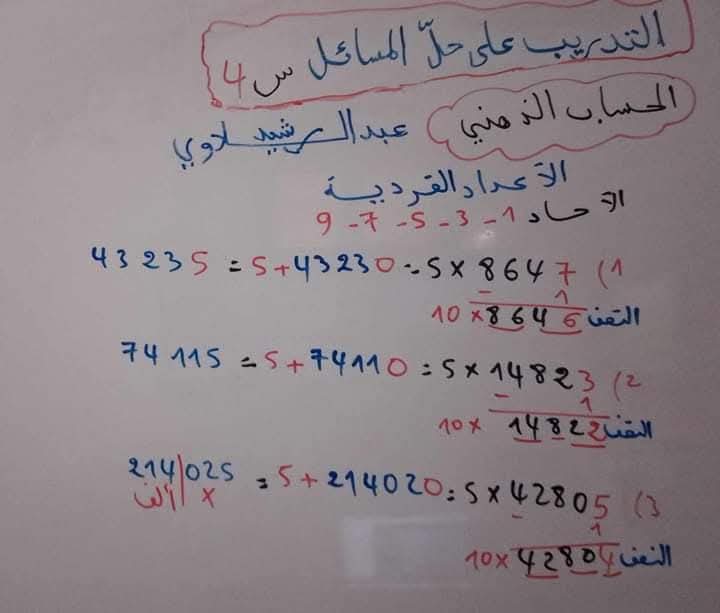 التدريب على حلّ المسائل س 4
الحساب الذهني عبد الرشيد لاوي
الأعداد الفردية
الآحاد 1 - 3 - 5 - 7 - 9
43235 = 5 + 43230 = 5 × 8647 (1
1 -
10 × 8646 النصف
74115 = 5 + 74110 = 5 × 14823 (2
1 -
10 × 14822 النصف
214025 = 5 + 214020 = 5 × 42805 (3
ألف x
1 -
10 × 42804 النصف